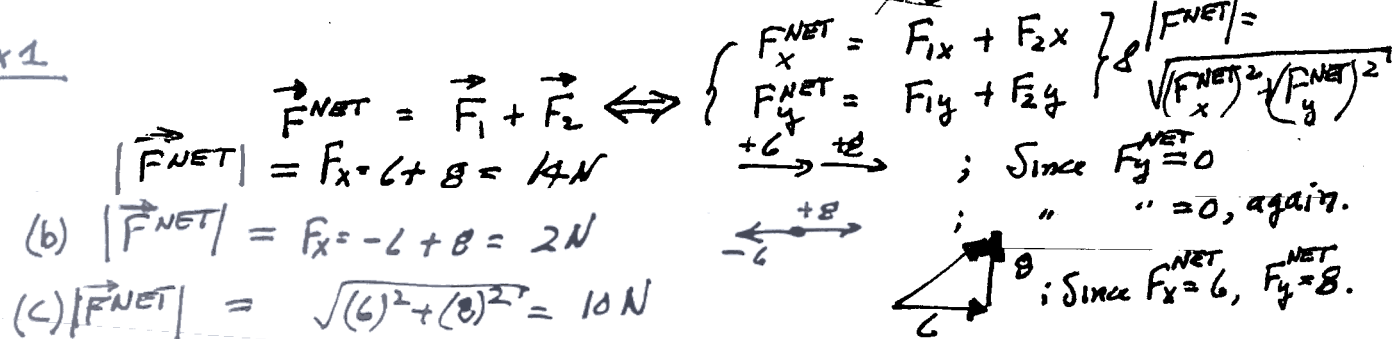 x 1
F⃗^NET = F⃗₁ + F⃗₂ ⇔ { F_x^NET = F₁x + F₂x
F_y^NET = F₁y + F₂y } & |F^NET| = √((F_x^NET)² + (F_y^NET)²)
|F⃗^NET| = Fx = 6 + 8 = 14N +6 +8 ; Since F_y^NET = 0
(b) |F⃗^NET| = Fx = -6 + 8 = 2N -6 +8 ; " " = 0, again.
(c) |F⃗^NET| = √((6)² + (8)²) = 10N 6 8 ; Since F_x^NET = 6, F_y^NET = 8.